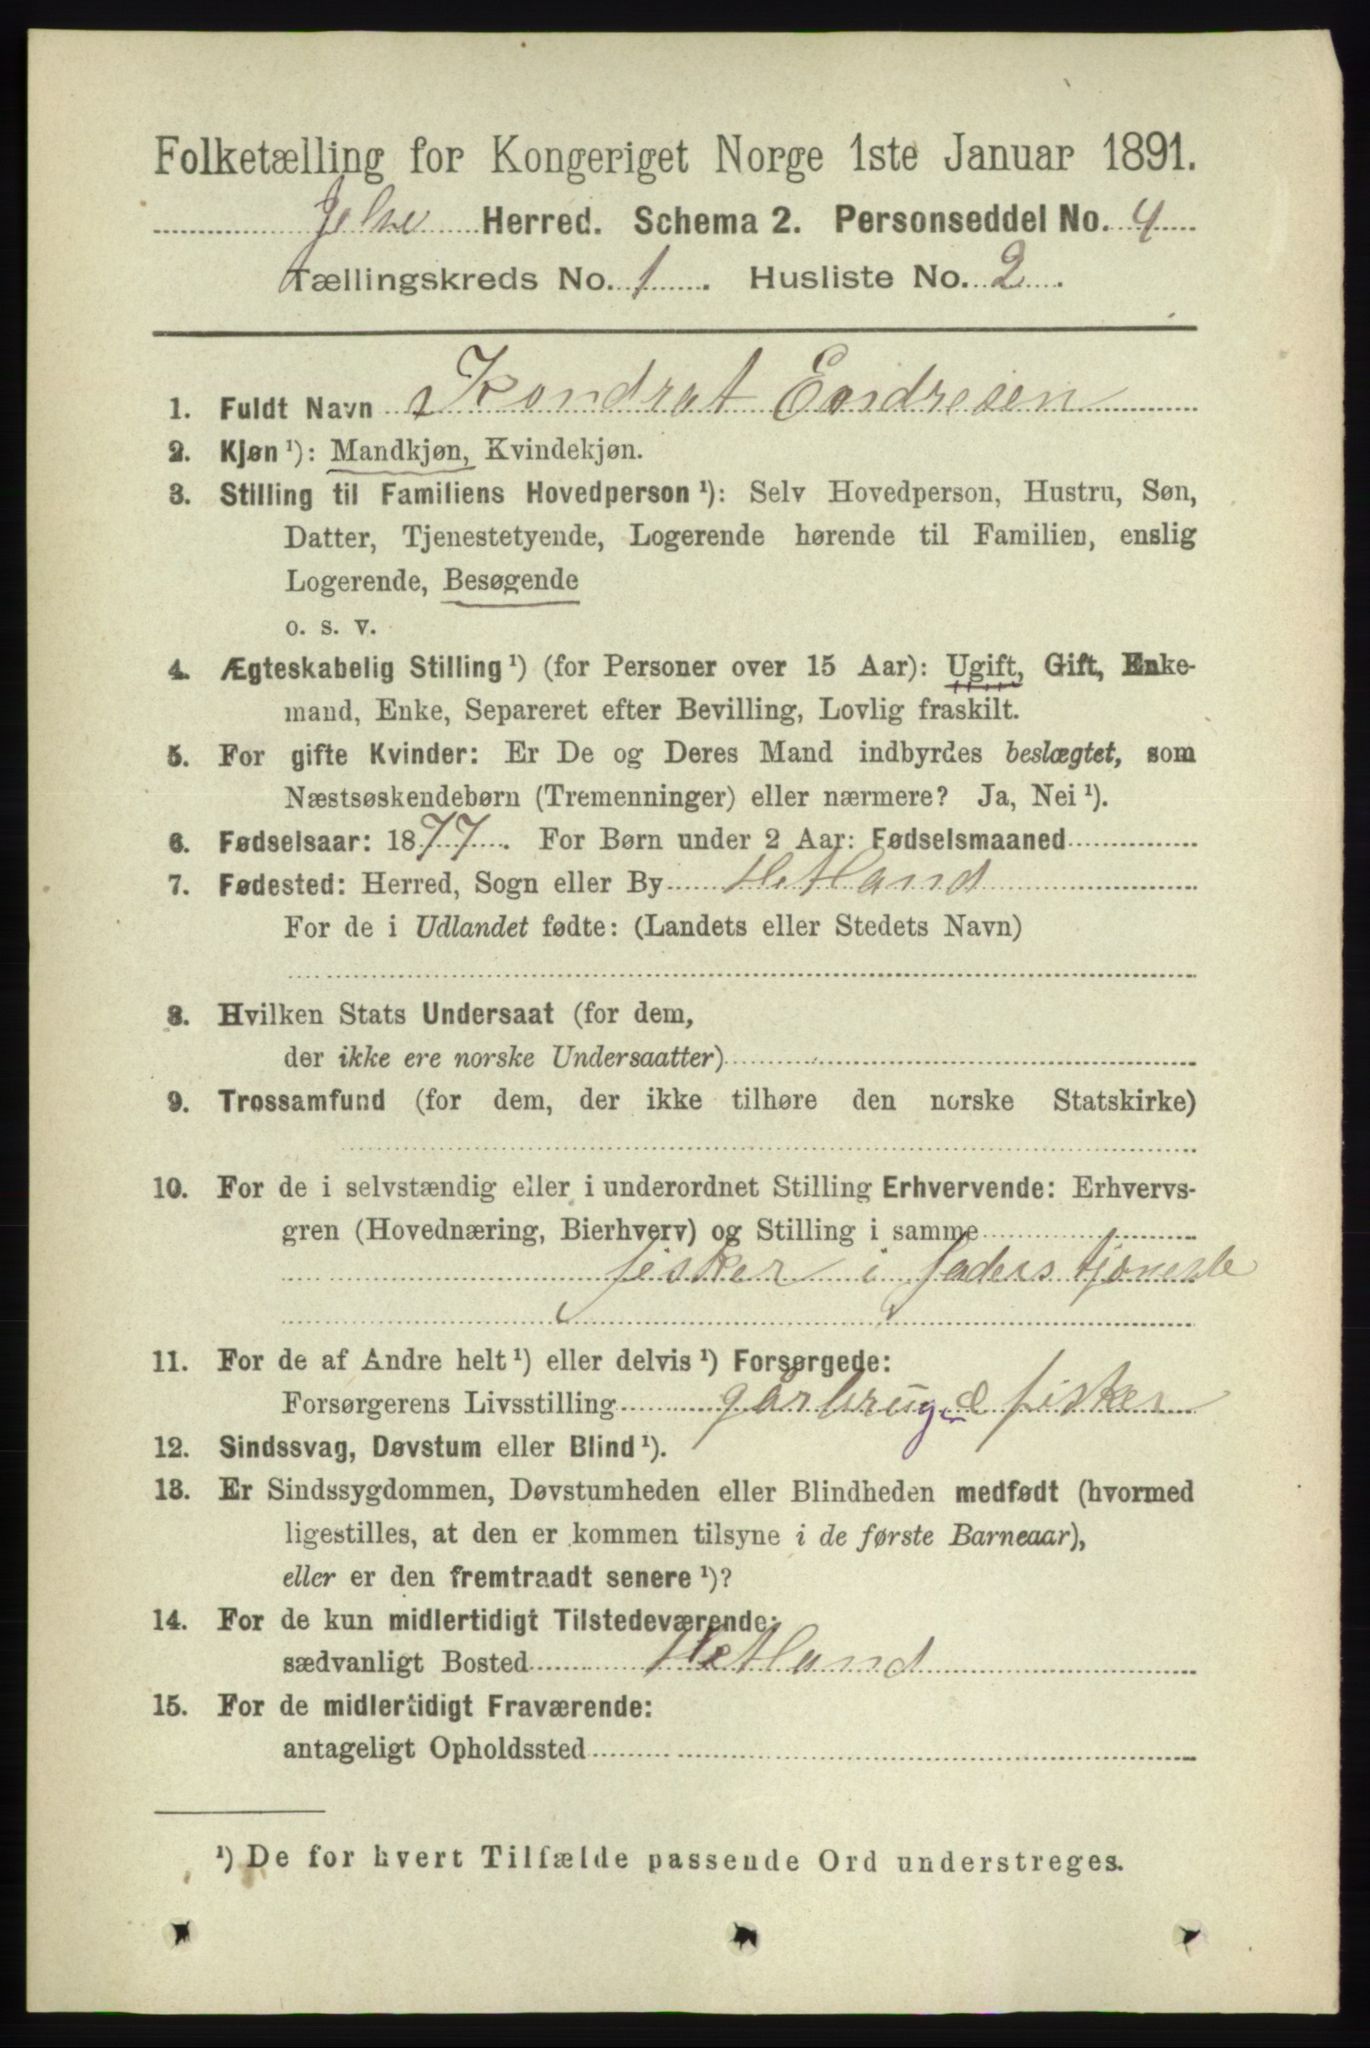 Folketælling for Kongeriget Norge 1ste Januar 1891.
Jelse Herred. Schema 2. Personseddel No. 4
Tællingskreds No. 1. Husliste No. 2.
1. Fuldt Navn Kondrat Endresen
2. Kjøn¹): Mandkjøn, Kvindekjøn.
3. Stilling til Familiens Hovedperson¹): Selv Hovedperson, Hustru, Søn,
Datter, Tjenestetyende, Logerende hørende til Familien, enslig
Logerende, Besøgende
o. s. v.
4. Ægteskabelig Stilling¹) (for Personer over 15 Aar): Ugift, Gift, Enke-
mand, Enke, Separeret efter Bevilling, Lovlig fraskilt.
5. For gifte Kvinder: Er De og Deres Mand indbyrdes beslægtet, som
Næstsøskendebørn (Tremenninger) eller nærmere? Ja, Nei¹).
6. Fødselsaar: 1877. For Børn under 2 Aar: Fødselsmaaned
7. Fødested: Herred, Sogn eller By Hetland
For de i Udlandet fødte: (Landets eller Stedets Navn)
8. Hvilken Stats Undersaat (for dem,
der ikke ere norske Undersaatter)
9. Trossamfund (for dem, der ikke tilhøre den norske Statskirke)
10. For de i selvstændig eller i underordnet Stilling Erhvervende: Erhvervs-
gren (Hovednæring, Bierhverv) og Stilling i samme
fisker i faders tjeneste
11. For de af Andre helt¹) eller delvis¹) Forsørgede:
Forsørgerens Livsstilling fisker
12. Sindssvag, Døvstum eller Blind¹).
13. Er Sindssygdommen, Døvstumheden eller Blindheden medfødt (hvormed
ligestilles, at den er kommen tilsyne i de første Barneaar),
eller er den fremtraadt senere¹)?
14. For de kun midlertidigt Tilstedeværende:
sædvanligt Bosted Hetland
15. For de midlertidigt Fraværende:
antageligt Opholdssted
¹) De for hvert Tilfælde passende Ord understreges.